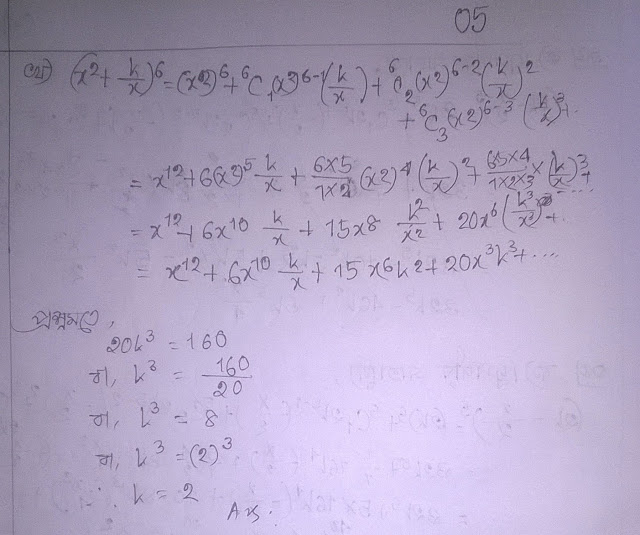 05
(x²+ k/x)⁶=(x²)⁶+⁶C₁(x²)⁶⁻¹(k/x)+⁶C₂(x²)⁶⁻²(k/x)²
+⁶C₃(x²)⁶⁻³ (k/x)³+..
= x¹²+6(x²)⁵ k/x + 6×5/1×2 (x²)⁴ (k/x)² + 6×5×4/1×2×3 × (k/x)³+....
= x¹²+6x¹⁰ k/x + 15x⁸ k²/x² + 20x⁶(k³/x³)+..
= x¹²+6x¹⁰ k/x + 15x⁶k²+20x³k³+....
প্রশ্নমতে,
20k³=160
বা, k³ = 160/20
বা, k³ = 8
বা, k³ =(2)³
∴ k = 2
Ans.